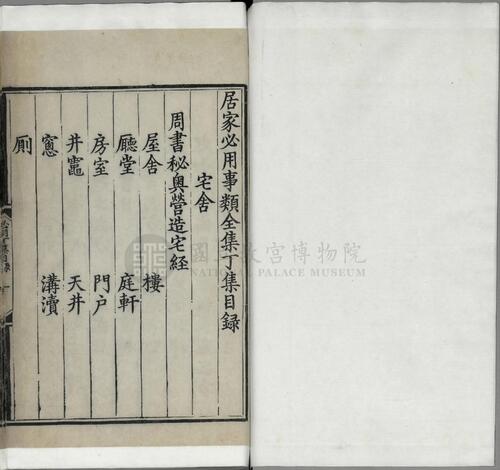 居家必用事類全集丁集目録
宅舍
周書秘奥營造宅經
屋舍 樓
廳堂 庭軒
房室 門户
井竈 天井
窻 溝瀆
厠
國立故宮博物院
NATIONAL PALACE MUSEUM